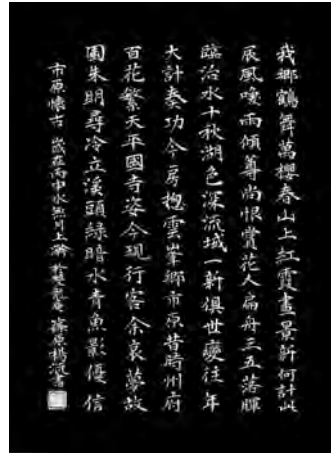 我鄉鶴舞萬櫻春山上紅霞畫景新何計此
辰風喚雨傾尊尚恨賞花人扁舟三五落暉
臨治水千秋湖色深流域一新俱世變往年
大計奏功今房總雲峯鄉市原昔時州府
百花繁天平國寺姿今現行客余哀夢故
園朱明尋冷立溪頭綠暗水青魚影優信
市原懷古 歲在丙申水無月上澣 篠原 書